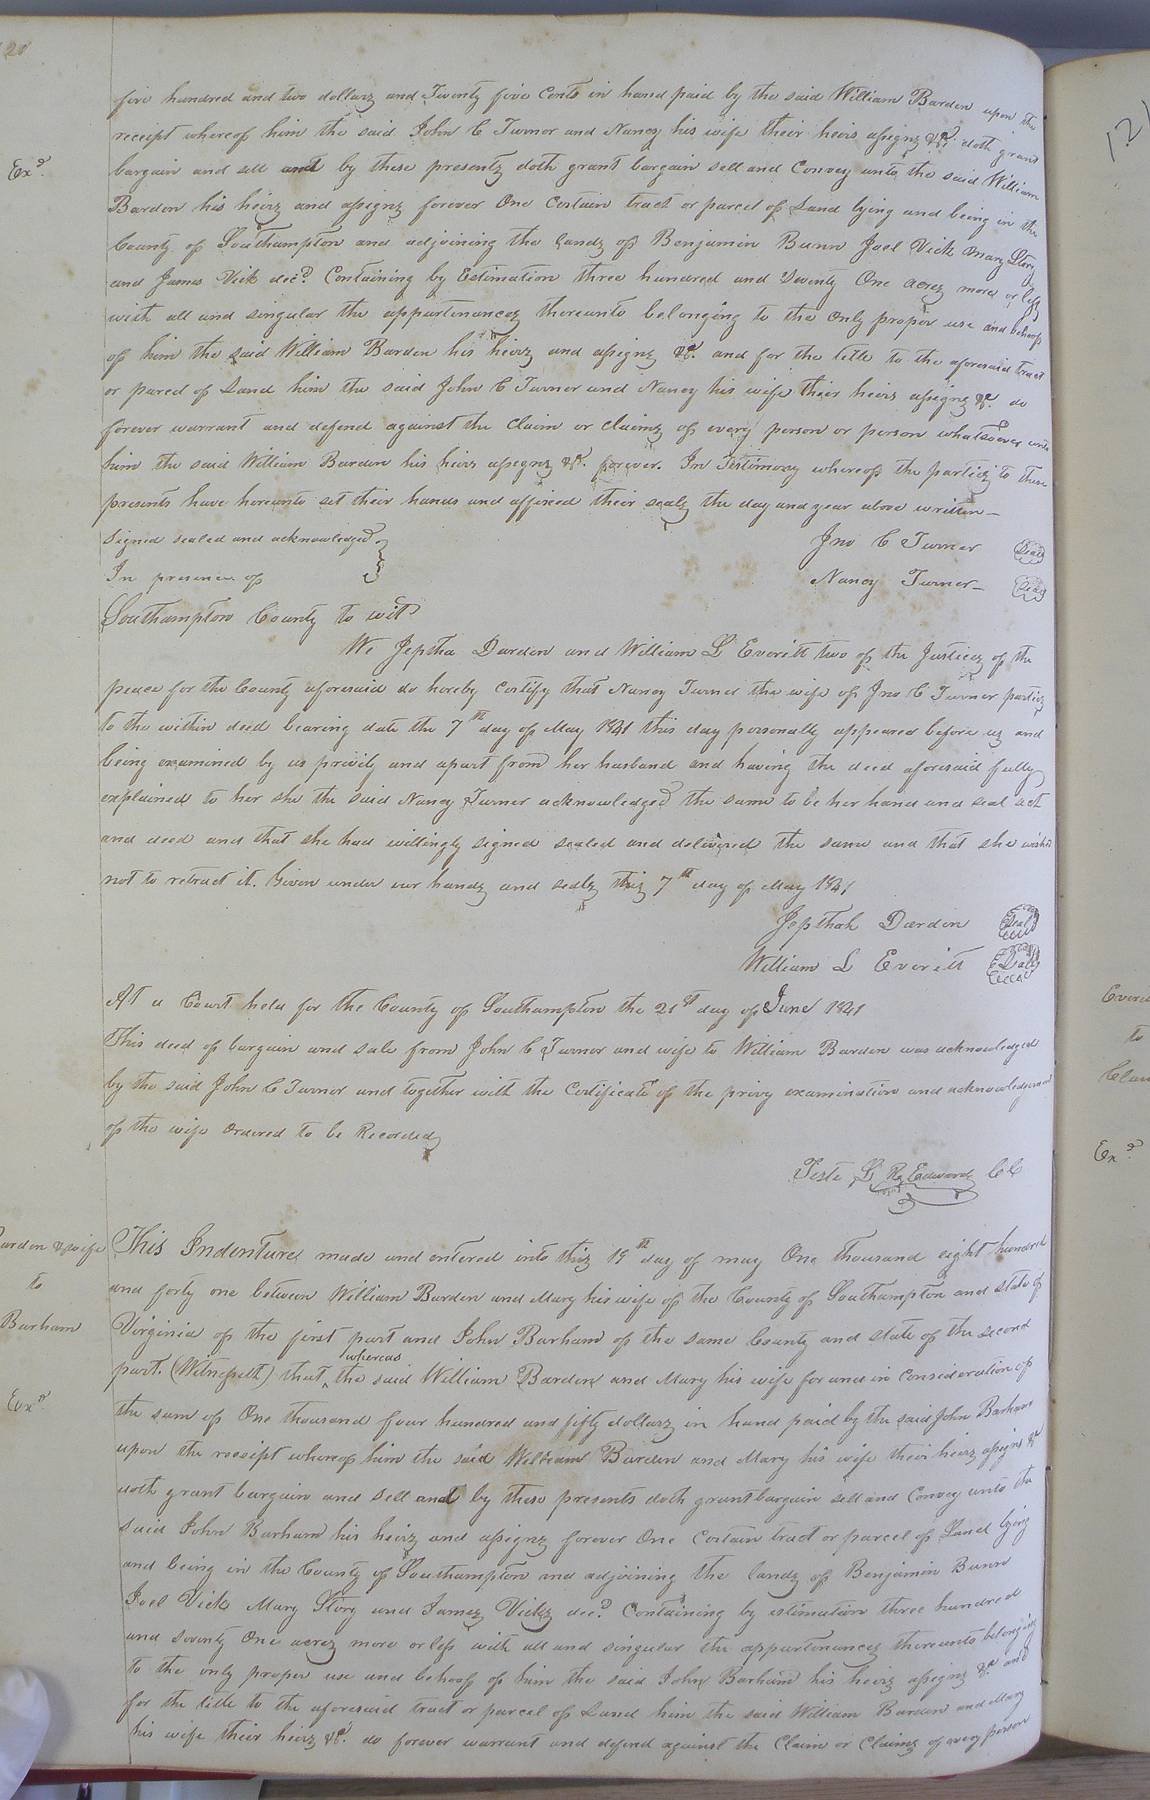 120
five hundred and two dollars and Twenty five Cents in hand paid by the said William Barden upon the
receipt whereof him the said John C Turner and Nancy his wife their heirs assigns &c. doth grant
Exd.
bargain and sell and by these presents doth grant bargain sell and Convey unto the said William
Barden his heirs and assigns forever One Certain tract or parcel of Land lying and being in the
County of Southampton and adjoining the lands of Benjamin Bunn Joel Vick Mary Story
and James Vick decd. Containing by Estimation three hundred and Seventy One acres more or less
with all and singular the appurtenances thereunto belonging to the Only proper use and behoof
of him the said William Barden his heirs and assigns &c. and for the title to the aforesaid tract
or parcel of Land him the said John C Turner and Nancy his wife their heirs assigns &c. do
forever warrant and defend against the Claim or Claims of every person or person whatsoever unto
him the said William Barden his heirs assigns &c. forever. In Testimony whereof the parties to these
presents have hereunto set their hands and affixed their seals the day and year above written—
Signed sealed and acknowledged } Jno C Turner Seal
In presence of } Nancy Turner— Seal
Southampton County to wit
We Jeptha Darden and William L Everitt two of the Justices of the
peace for the County aforesaid do hereby Certify that Nancy Turner the wife of Jno C Turner parties
to the within deed bearing date the 7th day of May 1841 this day personally appeared before us and
being examined by us privily and apart from her husband and having the deed aforesaid fully
explained to her she the said Nancy Turner acknowledged the same to be her hand and seal act
and deed and that she had willingly signed sealed and delivered the same and that she wished
not to retract it. Given under our hands and seals this 7th day of May 1841
Jepthah Darden Seal
William L Everitt Seal
At a Court held for the County of Southampton the 21st day of June 1841
This deed of bargain and sale from John C Turner and wife to William Barden was acknowledged
by the said John C Turner and together with the Certificate of the privy examination and acknowledgment
of the wife Ordered to be Recorded
Teste L R Edwards CC
Barden & wife
to
Barham
Exd.
This Indenture made and entered into this 19th day of may One thousand eight hundred
and forty one between William Barden and Mary his wife of the County of Southampton and State of
Virginia of the first part and John Barham of the same County and state of the second
part. (Witnesseth) that whereas the said William Barden and Mary his wife for and in Consideration of
the sum of One thousand four hundred and fifty dollars in hand paid by the said John Barham
upon the receipt whereof him the said William Barden and Mary his wife their heirs assigns &c
doth grant bargain and Sell and by these presents doth grant bargain sell and Convey unto the
said John Barham his heirs and assigns forever One Certain tract or parcel of Land lying
and being in the County of Southampton and adjoining the lands of Benjamin Bunn
Joel Vick Mary Story and James Vicks decd. Containing by estimation three hundred
and seventy One acres more or less with all and singular the appurtenances thereunto belonging
to the only proper use and behoof of him the said John Barham his heirs assigns &c and
for the title to the aforesaid tract or parcel of Land him the said William Barden and Mary
his wife their heirs &c. do forever warrant and defend against the Claim or Claims of every person
121
to
Exd.